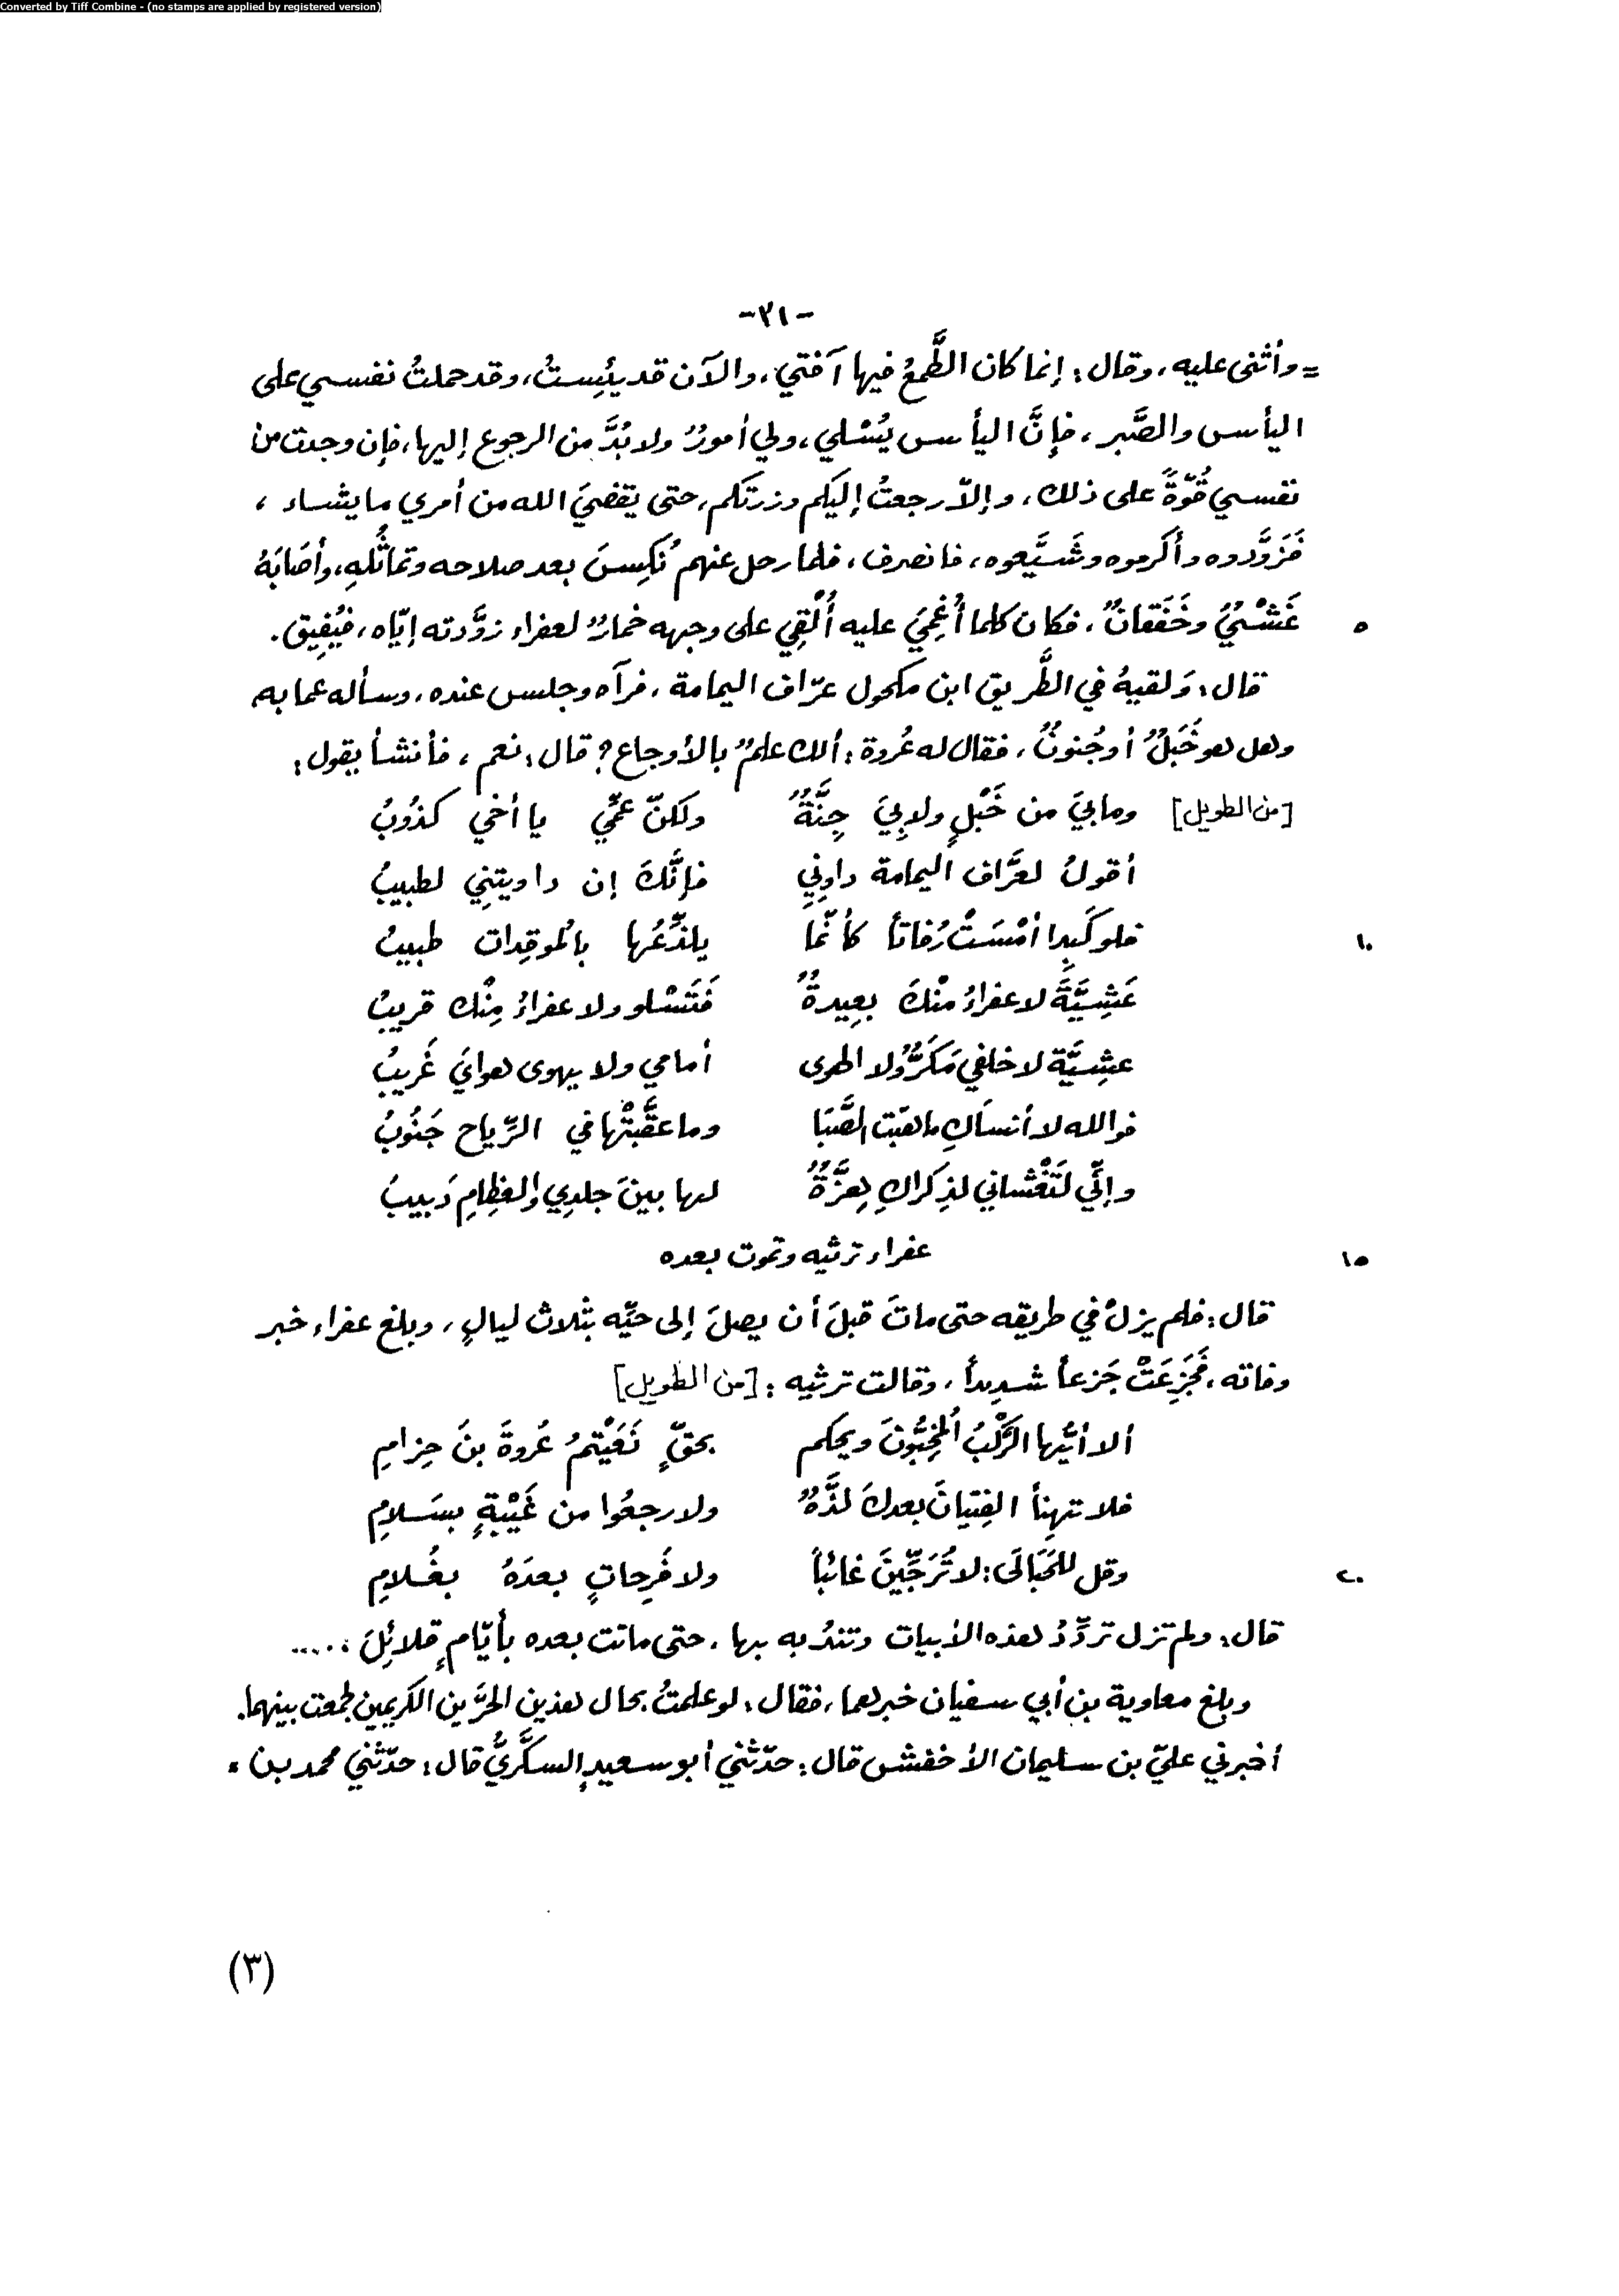 Converted by Tiff Combine - (no stamps are applied by registered version)
-٢١-
= وأثنى عليه، وقال: إنما كان الطَّمعُ فيها آفتي، والآن قد يئِستُ، وقد حملتُ نفسي على
اليأس والصَّبر، فإنَّ اليأس يُسْلي، ولي أمورٌ ولا بُدَّ من الرجوع إليها، فإن وجدت من
نفسي قُوَّةً على ذلك، وإلاّ رجعتُ إليكم وزرتكم، حتى يقضيَ الله من أمري ما يشاء،
فَزَوَّدوه وأكرموه وشَيَّعوه، فانصرف، فلما رحل عنهم نُكِسَ بعد صلاحه وتماثُلهِ، وأصَابَهُ
غَشْيٌ وخَفَقانٌ، فكان كلما أُغْمِيَ عليه أُلْقِي على وجهه خمارٌ لعفراء زوَّدته إيّاه، فيُفِيق. ٥
قال: وَلقيهُ في الطَّريق ابن مكحول عرّاف اليمامة، فرآه وجلس عنده، وسأله عما به
وهل هو خَبَلٌ أو جُنونٌ، فقال له عُروة: ألك علمٌ بالأوجاع؟ قال: نعم، فأنشأ يقول:
[من الطويل] وما بيَ من خَبْلٍ ولا بِيَ جِنَّةٌ ولكنّ عمِّي يا أخي كذُوبُ
أقولُ لعرَّاف اليمامة داوِنِي فإنَّكَ إن داويتنِي لطبيبُ
فلو كَبِدا أمْسَتْ رُفاتاً كأنّما يلذِّعُها بالموقِدات طبيبُ ١٠
عَشِيَّةَ لا عفراءُ منْكَ بعِيدةٌ فَتَسْلو ولا عفراءُ مِنْك قريبُ
عشِيَّة لا خلفي مَكَرٌّ ولا الهوى أمامي ولا يهوى هوايَ غَريبُ
فوالله لا أنسَاكِ ما هبّت الصَّبَا وما عقَّبتْها في الرِّياح جَنُوبُ
وإنِّي لَتَغْشاني لذِكراكِ هِزَّةٌ لها بينَ جلدِي والعِظامِ دَبيبُ
عفراء ترثيه وتموت بعده ١٥
قال: فلم يزلْ في طريقه حتى ماتَ قبلَ أن يصلَ إلى حيِّه بثلاث ليالٍ، وبلغ عفراء خبر
وفاته، فجَزِعَتْ جَزعاً شديداً، وقالت ترثيه: [من الطويل]
ألا أيُّها الرَّكْبُ المُخِبُّونَ ويحكم بحقٍّ نَعَيْتمُ عُروةَ بنَ حِزامِ
فلا تهنِأ الفِتيانَ بعدكَ لذَّةٌ ولا رجعُوا من غَيْبةٍ بسَلامِ
وقل للحَبَالَى: لا تُرَجِّينَ غائباً ولا فَرِحاتٍ بعدَهُ بغُلامِ ٢٠
قال: ولم تزل تردِّدُ هذه الأبيات وتندُبه بها، حتى ماتت بعده بأيّامٍ قلائِلَ، ....
وبلغ معاوية بن أبي سفيان خبرهما، فقال: لو علمتُ بحال هذين الحرَّين الكريمين لجمعت بينهما.
أخبرني عليّ بن سليمان الأخفش قال: حدّثني أبو سعيدٍ السكَّريُّ قال: حدّثني محمد بن =
(٣)